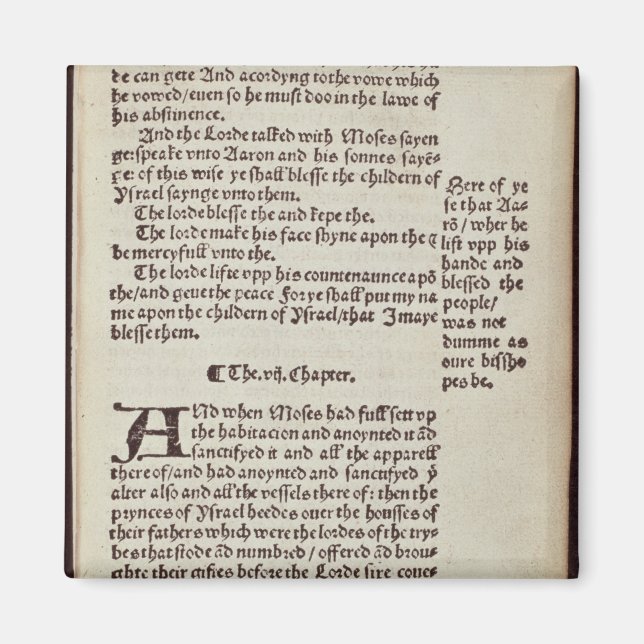 de can gete And acordyng to the vowe which
he vowed/ even so he must doo in the lawe of
his abstinence.
And the Lorde talked with Moses sayen
ge: speake vnto Aaron and his sonnes sayē=
ge: of this wise ye shall blesse the childern of
Ysrael saynge vnto them.
The lorde blesse the and kepe the.
The lorde make his face shyne apon the ⁊
be mercyfull vnto the.
The lorde lifte vpp his countenaunce apō
the/ and geue the peace For ye shall put my na
me apon the childern of Ysrael/ that I maye
blesse them.
Here of ye
se that Aa=
rō/ wher he
lift vpp his
hande and
blessed the
people/
was not
dumme as
oure bissho
pes be.
¶ The .vij. Chapter.
ANd when Moses had full sett vp
the habitacion and anoynted it ād
sanctifyed it and all the apparell
there of/ and had anoynted and sanctifyed ẙ
alter also and all the vessels there of: then the
prynces of Ysrael heedes ouer the housses of
their fathers which were the lordes of the try=
bes that stode ād numbred/ offered ād brou=
ghte their giftes before the Lorde sixe coue=